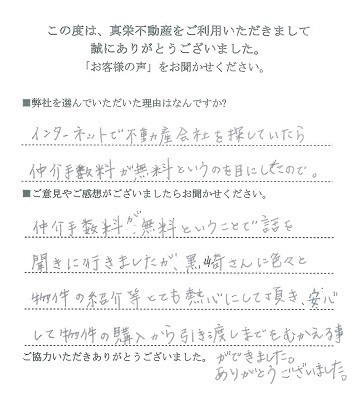 この度は、真栄不動産をご利用いただきまして
誠にありがとうございました。
「お客様の声」をお聞かせください。
■弊社を選んでいただいた理由はなんですか?
インターネットで不動産会社を探していたら
仲介手数料が無料というのを目にしたので。
■ご意見やご感想がございましたらお聞かせください。
仲介手数料が無料ということで話を
聞きに行きましたが、黒崎さんに色々と
物件の紹介等とても熱心にして頂き、安心
して物件の購入から引き渡しまでをむかえる事
ができました。
ご協力いただきありがとうございました。
ありがとうございました。